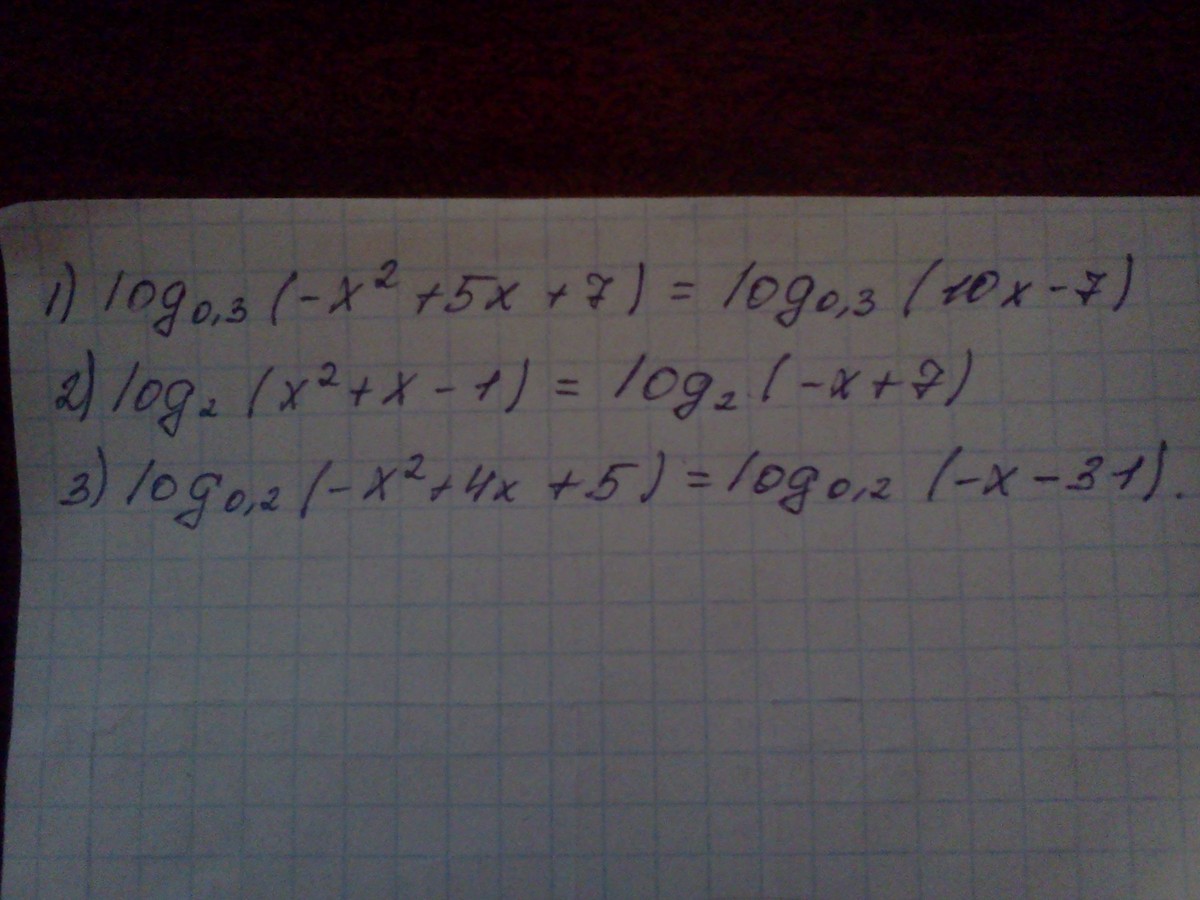 1) log₀,₃ (-x² + 5x + 7) = log₀,₃ (10x - 7)
2) log₂ (x² + x - 1) = log₂ (-x + 7)
3) log₀,₂ (-x² + 4x + 5) = log₀,₂ (-x - 31).